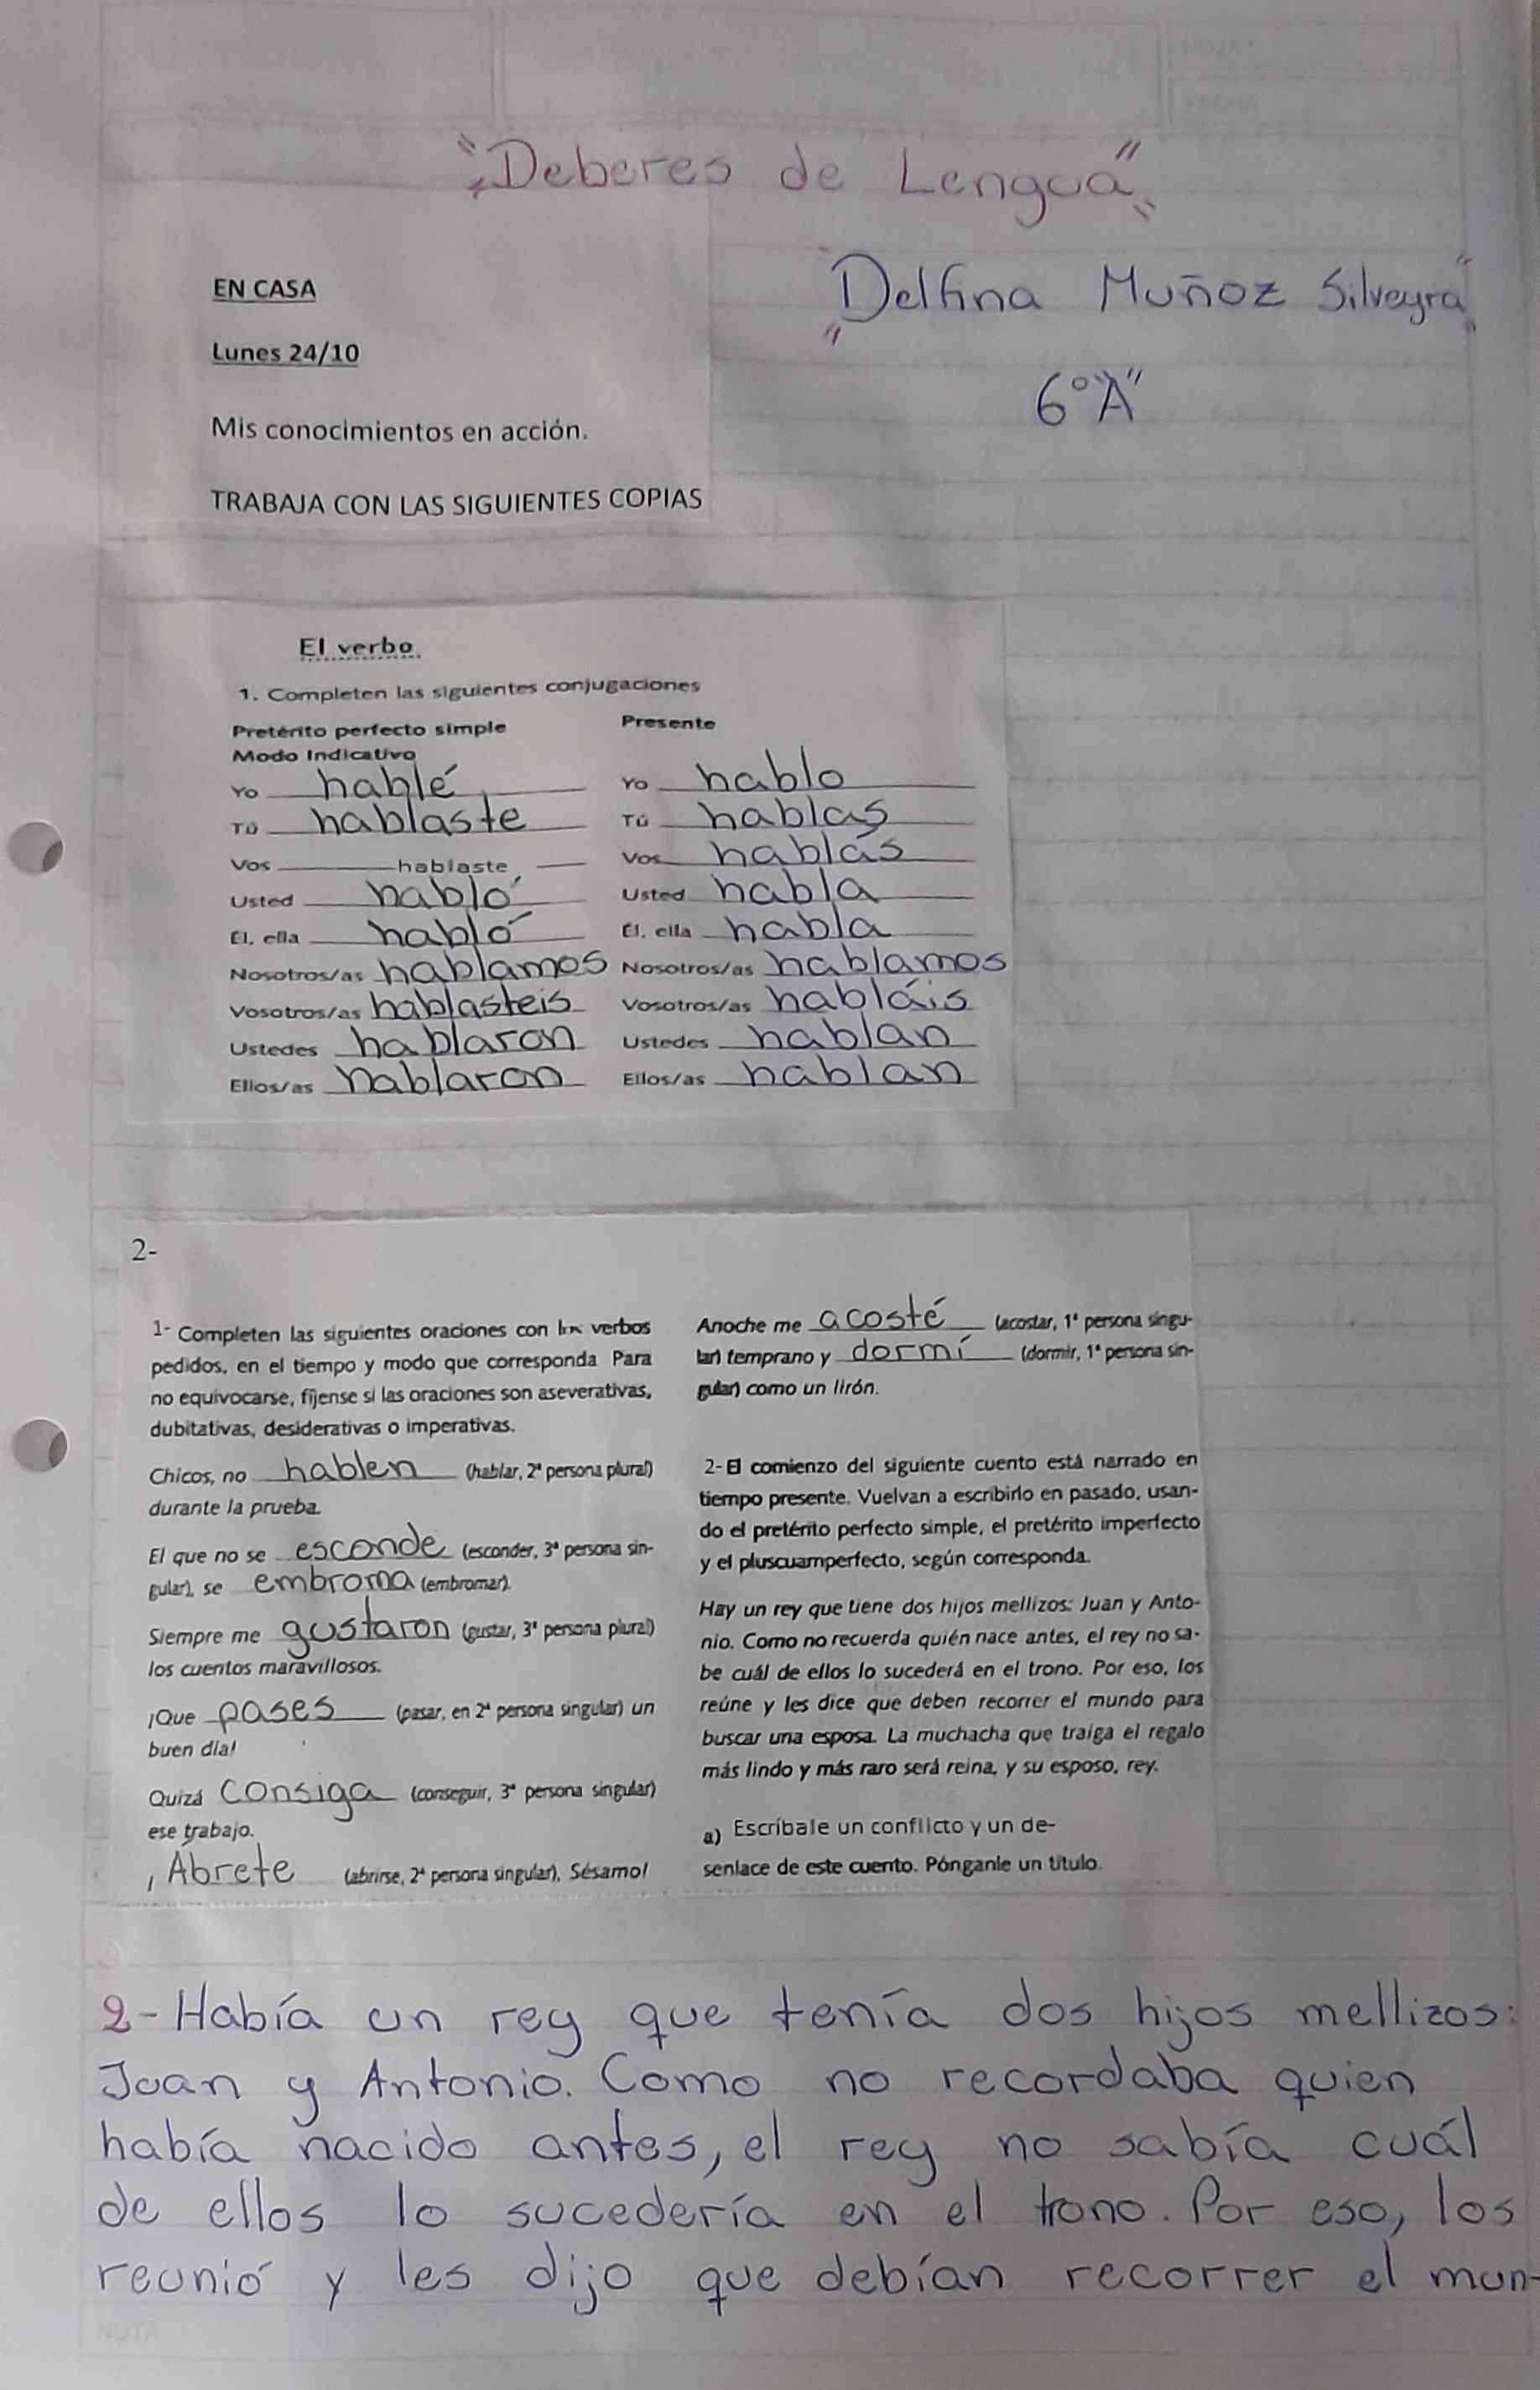 "Deberes de Lengua"
"Delfina Muñoz Silveyra"
6° "A"
EN CASA
Lunes 24/10
Mis conocimientos en acción.
TRABAJA CON LAS SIGUIENTES COPIAS
El verbo
1. Completen las siguientes conjugaciones
Pretérito perfecto simple
Modo Indicativo
Yo hablé
Tú hablaste
Vos hablaste
Usted habló
Él, ella habló
Nosotros/as hablamos
Vosotros/as hablasteis
Ustedes hablaron
Ellos/as hablaron
Presente
Yo hablo
Tú hablas
Vos hablás
Usted habla
Él, ella habla
Nosotros/as hablamos
Vosotros/as habláis
Ustedes hablan
Ellos/as hablan
2-
1- Completen las siguientes oraciones con los verbos
pedidos, en el tiempo y modo que corresponda Para
no equivocarse, fíjense si las oraciones son aseverativas,
dubitativas, desiderativas o imperativas.
Chicos, no hablen (hablar, 2ª persona plural)
durante la prueba.
El que no se esconde (esconder, 3ª persona sin-
gular), se embroma (embromar).
Siempre me gustaron (gustar, 3ª persona plural)
los cuentos maravillosos.
¡Que pases (pasar, en 2ª persona singular) un
buen día!
Quizá consiga (conseguir, 3ª persona singular)
ese trabajo.
¡Ábrete (abrirse, 2ª persona singular), Sésamo!
Anoche me acosté (acostar, 1ª persona singu-
lar) temprano y dormí (dormir, 1ª persona sin-
gular) como un lirón.
2- El comienzo del siguiente cuento está narrado en
tiempo presente. Vuelvan a escribirlo en pasado, usan-
do el pretérito perfecto simple, el pretérito imperfecto
y el pluscuamperfecto, según corresponda.
Hay un rey que tiene dos hijos mellizos: Juan y Anto-
nio. Como no recuerda quién nace antes, el rey no sa-
be cuál de ellos lo sucederá en el trono. Por eso, los
reúne y les dice que deben recorrer el mundo para
buscar una esposa. La muchacha que traiga el regalo
más lindo y más raro será reina, y su esposo, rey.
a) Escríbale un conflicto y un de-
senlace de este cuento. Pónganle un título.
2- Había un rey que tenía dos hijos mellizos:
Juan y Antonio. Como no recordaba quien
había nacido antes, el rey no sabía cuál
de ellos lo sucedería en el trono. Por eso, los
reunió y les dijo que debían recorrer el mun-